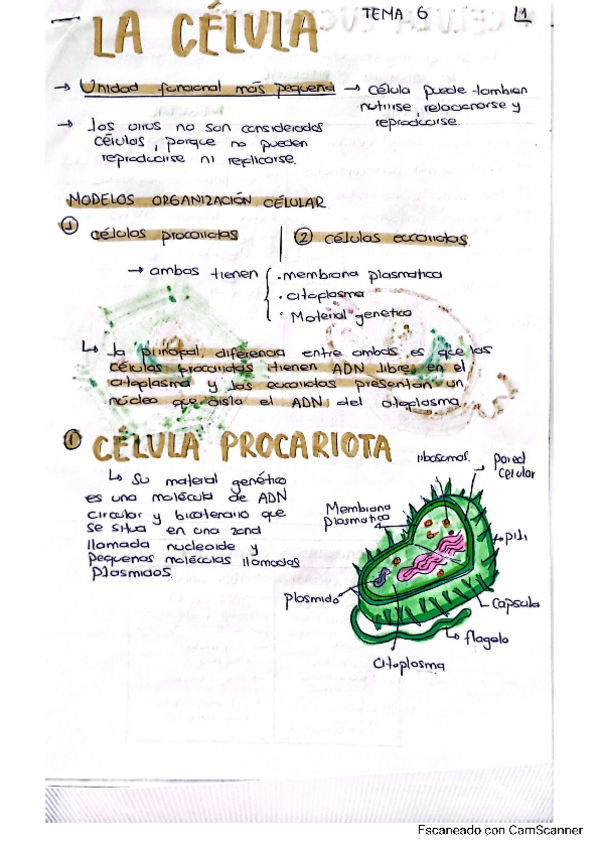 LA CÉLULA
TEMA 6
1
→ Unidad funcional más pequeña → célula puede tambien
nutrirse, relacionarse y
reproducirse.
→ los virus no son considerados
células, porque no pueden
reproducirse ni replicarse.
MODELOS ORGANIZACIÓN CÉLULAR
① células procariotas
② células eucariotas
→ ambas tienen
· membrana plasmatica
· citoplasma
· Material genetico
↳ la principal diferencia entre ambas es que las
células procariotas tienen ADN libre en el
citoplasma y las eucariotas presentan un
núcleo que aisla el ADN del citoplasma
① CÉLULA PROCARIOTA
↳ Su material genético
es una molécula de ADN
circular y bicatenario que
se situa en una zona
llamada nucleoide y
pequeñas moléculas llamadas
plasmidos.
ribosomas.
pared
celular
Membrana
plasmatica
pili
plasmido
capsula
flagelo
citoplasma
Escaneado con CamScanner